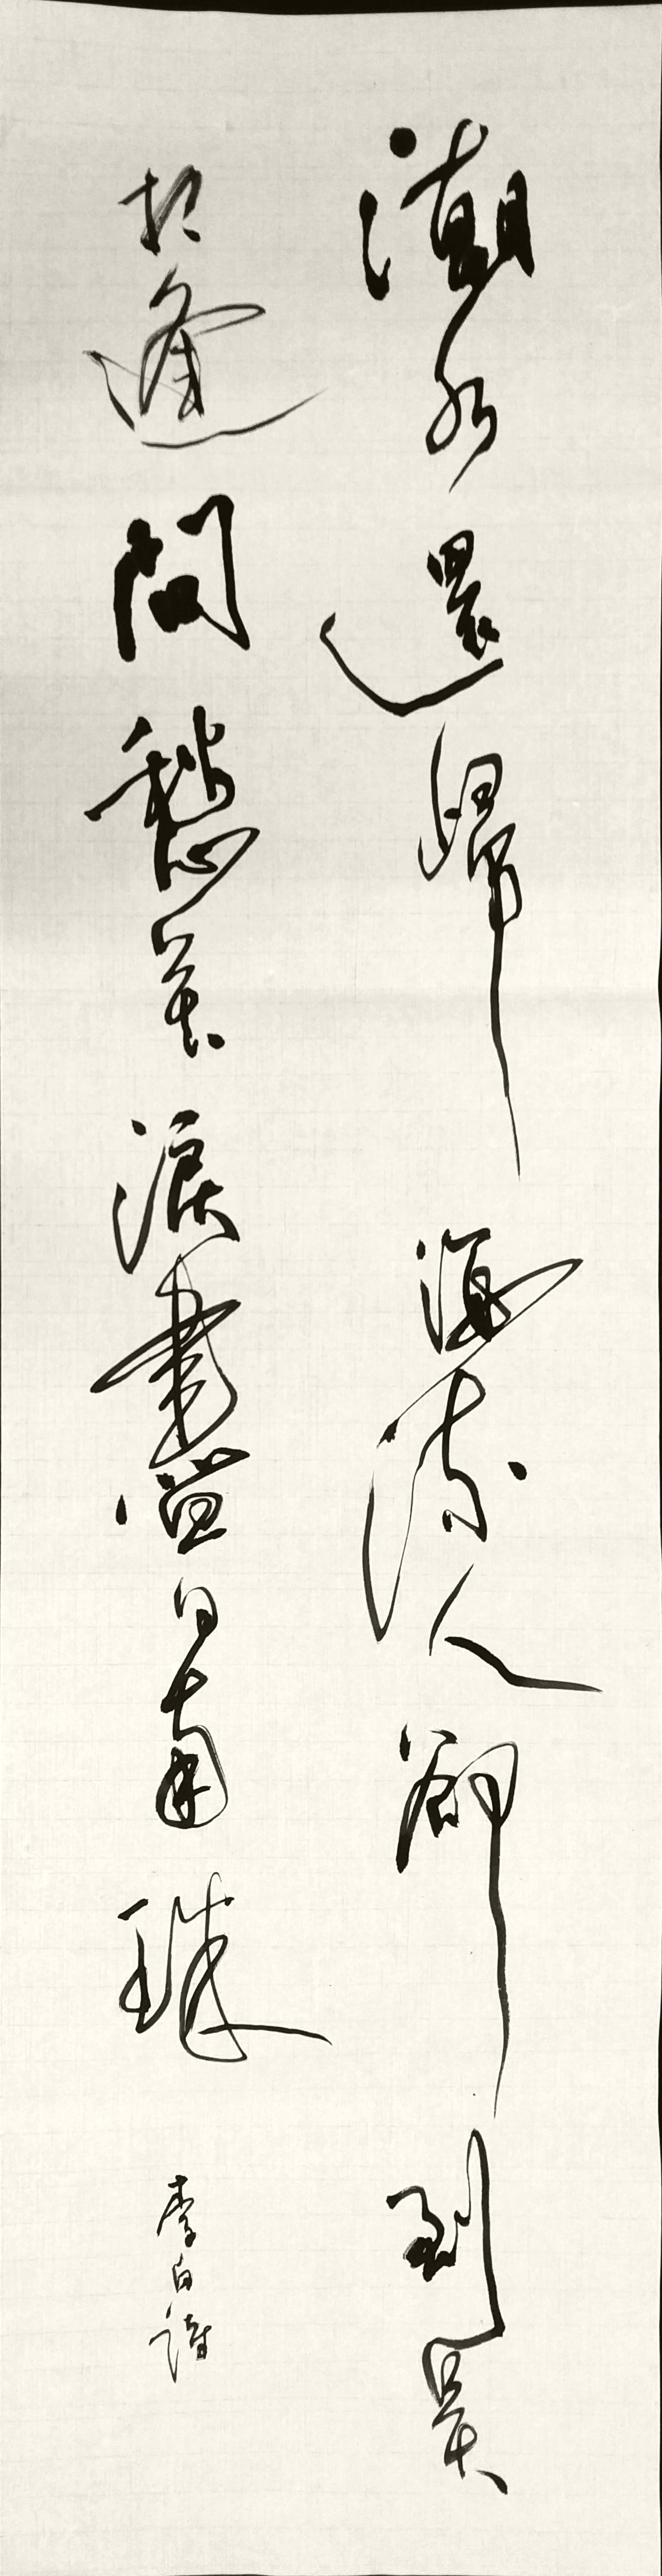 潮水還歸海流人却到吳
相逢問愁苦淚盡日南珠
李白詩